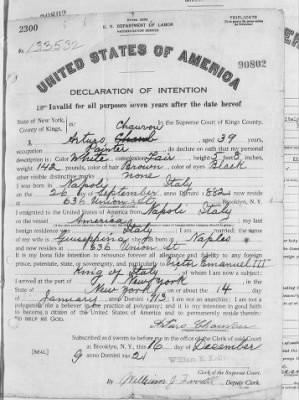 2300
TRIPLICATE
U. S. DEPARTMENT OF LABOR
NATURALIZATION SERVICE
No. 133532
90802
UNITED STATES OF AMERICA
90802
DECLARATION OF INTENTION
Invalid for all purposes seven years after the date hereof
State of New York,
County of Kings, ss: In the Supreme Court of Kings County.
I, Arturo , aged 39 years,
occupation Painter, do declare on oath that my personal
description is: Color White, complexion Fair, height 5 feet inches,
weight 142 pounds, color of hair Brown, color of eyes Black
other visible distinctive marks None
I was born in Napoli Italy
on the 26 day of September, anno Domini 1882; now reside
at 636 Union St, Brooklyn, N. Y.
I emigrated to the United States of America from Napoli Italy
on the vessel America; my last
foreign residence was Italy; I am married; the name
of my wife is Giuseppina; she was born in Naples
and now resides at 636 Union St
It is my bona fide intention to renounce forever all allegiance and fidelity to any foreign
prince, potentate, state, or sovereignty, and particularly to Victor Emanuel III
King of Italy, of whom I am now a subject;
I arrived at the port of New York, in the
State of New York, on or about the 14 day
of January, anno Domini 1913; I am not an anarchist; I am not a
polygamist nor a believer in the practice of polygamy; and it is my intention in good faith
to become a citizen of the United States of America and to permanently reside therein:
SO HELP ME GOD.
Arturo
Subscribed and sworn to before me in the office of the Clerk of said Court
at Brooklyn, N. Y., this 16 day of December
anno Domini 1921
[SEAL]
William E. Kelly
Clerk of the Supreme Court.
By William J. , Deputy Clerk.